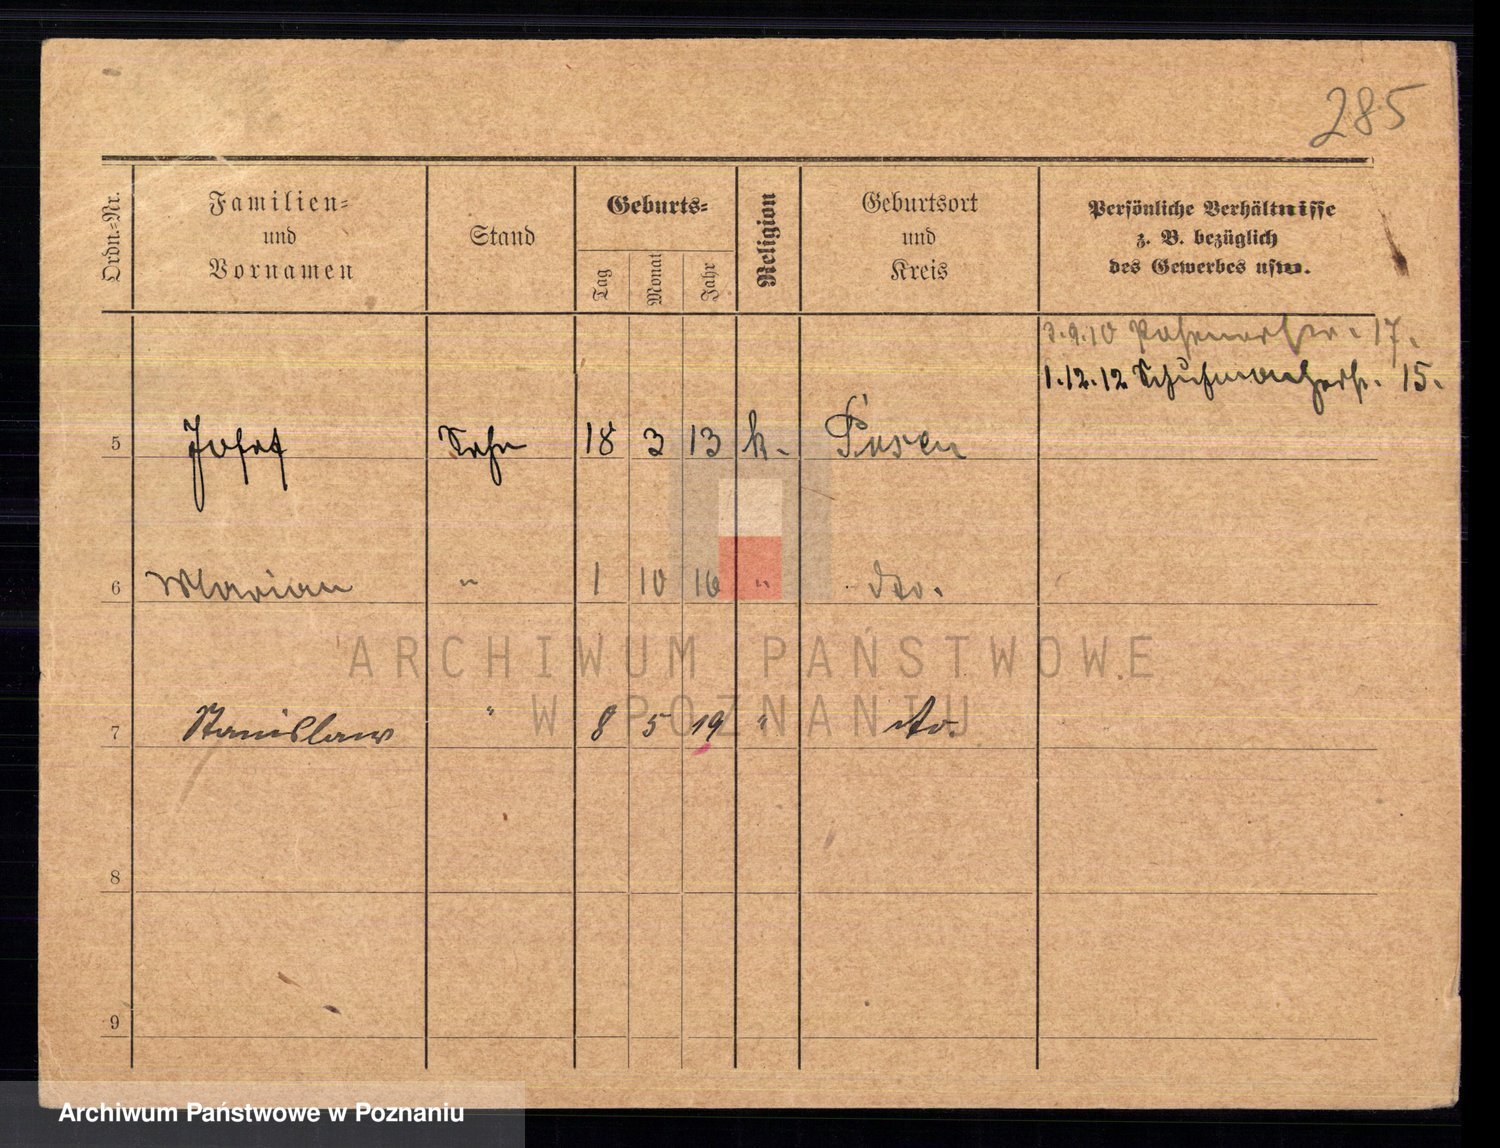 285
Ordn.-Nr.
Familien-
und
Vornamen
Stand
Geburts-
Tag
Monat
Jahr
Religion
Geburtsort
und
Kreis
Persönliche Verhältnisse
z. B. bezüglich
des Gewerbes usw.
3.9.10 17.
1.12.12 15.
5 Josef Sohn 18 3 13 k. Posen
6 Marian " 1 10 16 " dto.
ARCHIWUM PAŃSTWOWE
W POZNANIU
7 Stanislaw " 8 5 19 " dto.
8
9
Archiwum Państwowe w Poznaniu